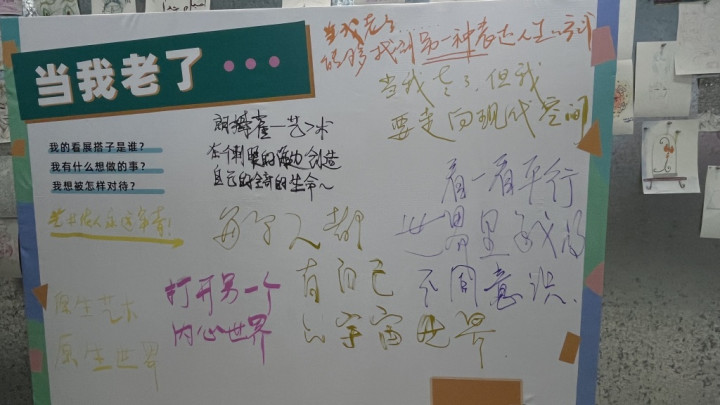 当我老了
我的看展搭子是谁？
我有什么想做的事？
我想被怎样对待？
当我老了
能够找到另一种表达人生的方式
当我老了，但我
要走向现代空间
艺术
自己的全部的生命～
看一看平行
世界里
不同意识.
每个人都
有自己
的宇宙世界.
打开另一个
内心世界
原生艺术
原生世界